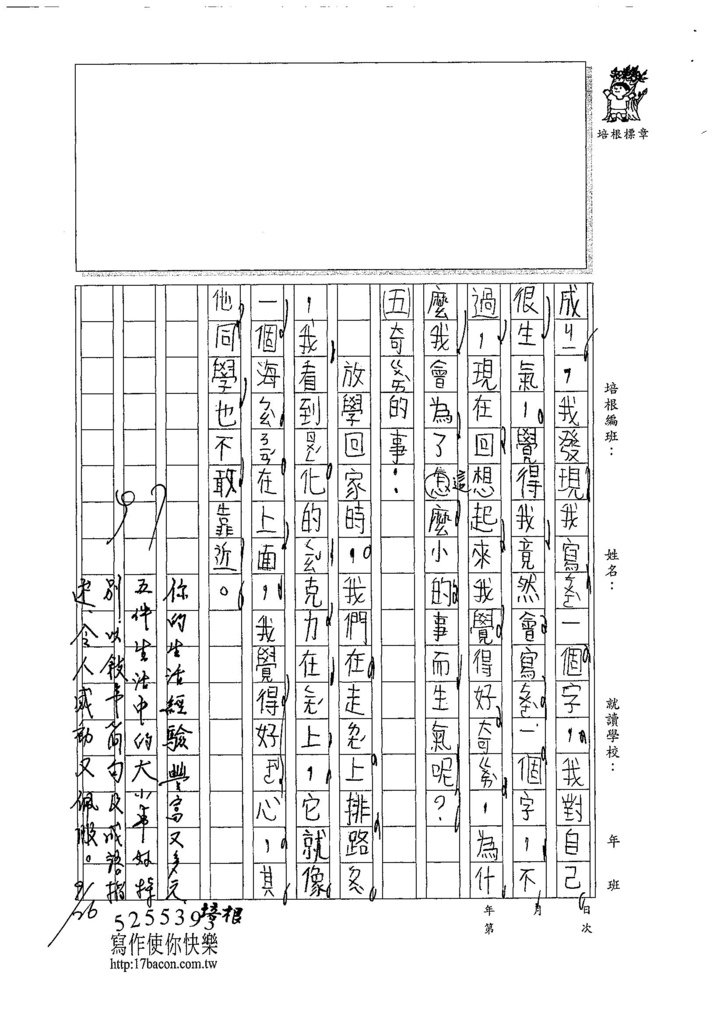 培根標章
培根編班：
姓名：
就讀學校：
年 班
年 月 日
第 次
成ㄐㄧ，我發現我寫ㄘㄨㄛˋ一個字，我對自己
很生氣，覺得我竟然會寫ㄘㄨㄛˋ一個字，不
過，現在回想起來我覺得好奇ㄍㄨㄞˋ，為什
麼我會為了這麼小的事而生氣呢？
(五)奇ㄍㄨㄞˋ的事：
放學回家時，我們在走ㄌㄤˊ上排路ㄉㄨㄟˋ
，我看到ㄖㄨㄥˊ化的ㄑㄧㄠˇ克力在ㄉㄧˋ上，它就像
一個海ㄇㄧㄢˊ在上面，我覺得好ㄜˇ心，其
他同學也不敢靠近。
97
你的生活經驗豐富又多元
五件生活中的大小事好特
別，以敍事简句及成語描
述，令人感動又佩服。
9/26
5255393 培根
寫作使你快樂
http:17bacon.com.tw